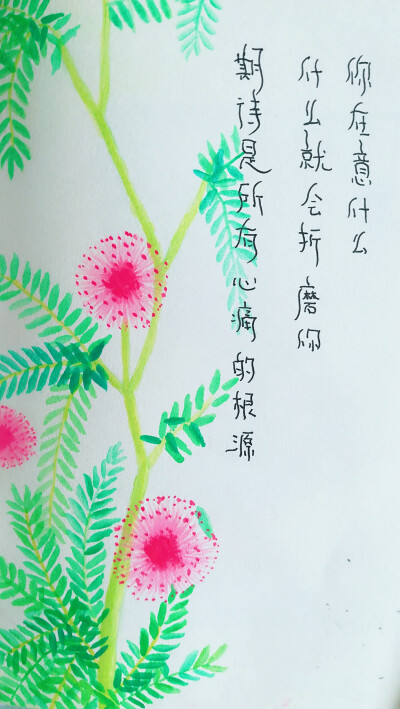 你在意什么
什么就会折磨你
期待是所有心痛的根源